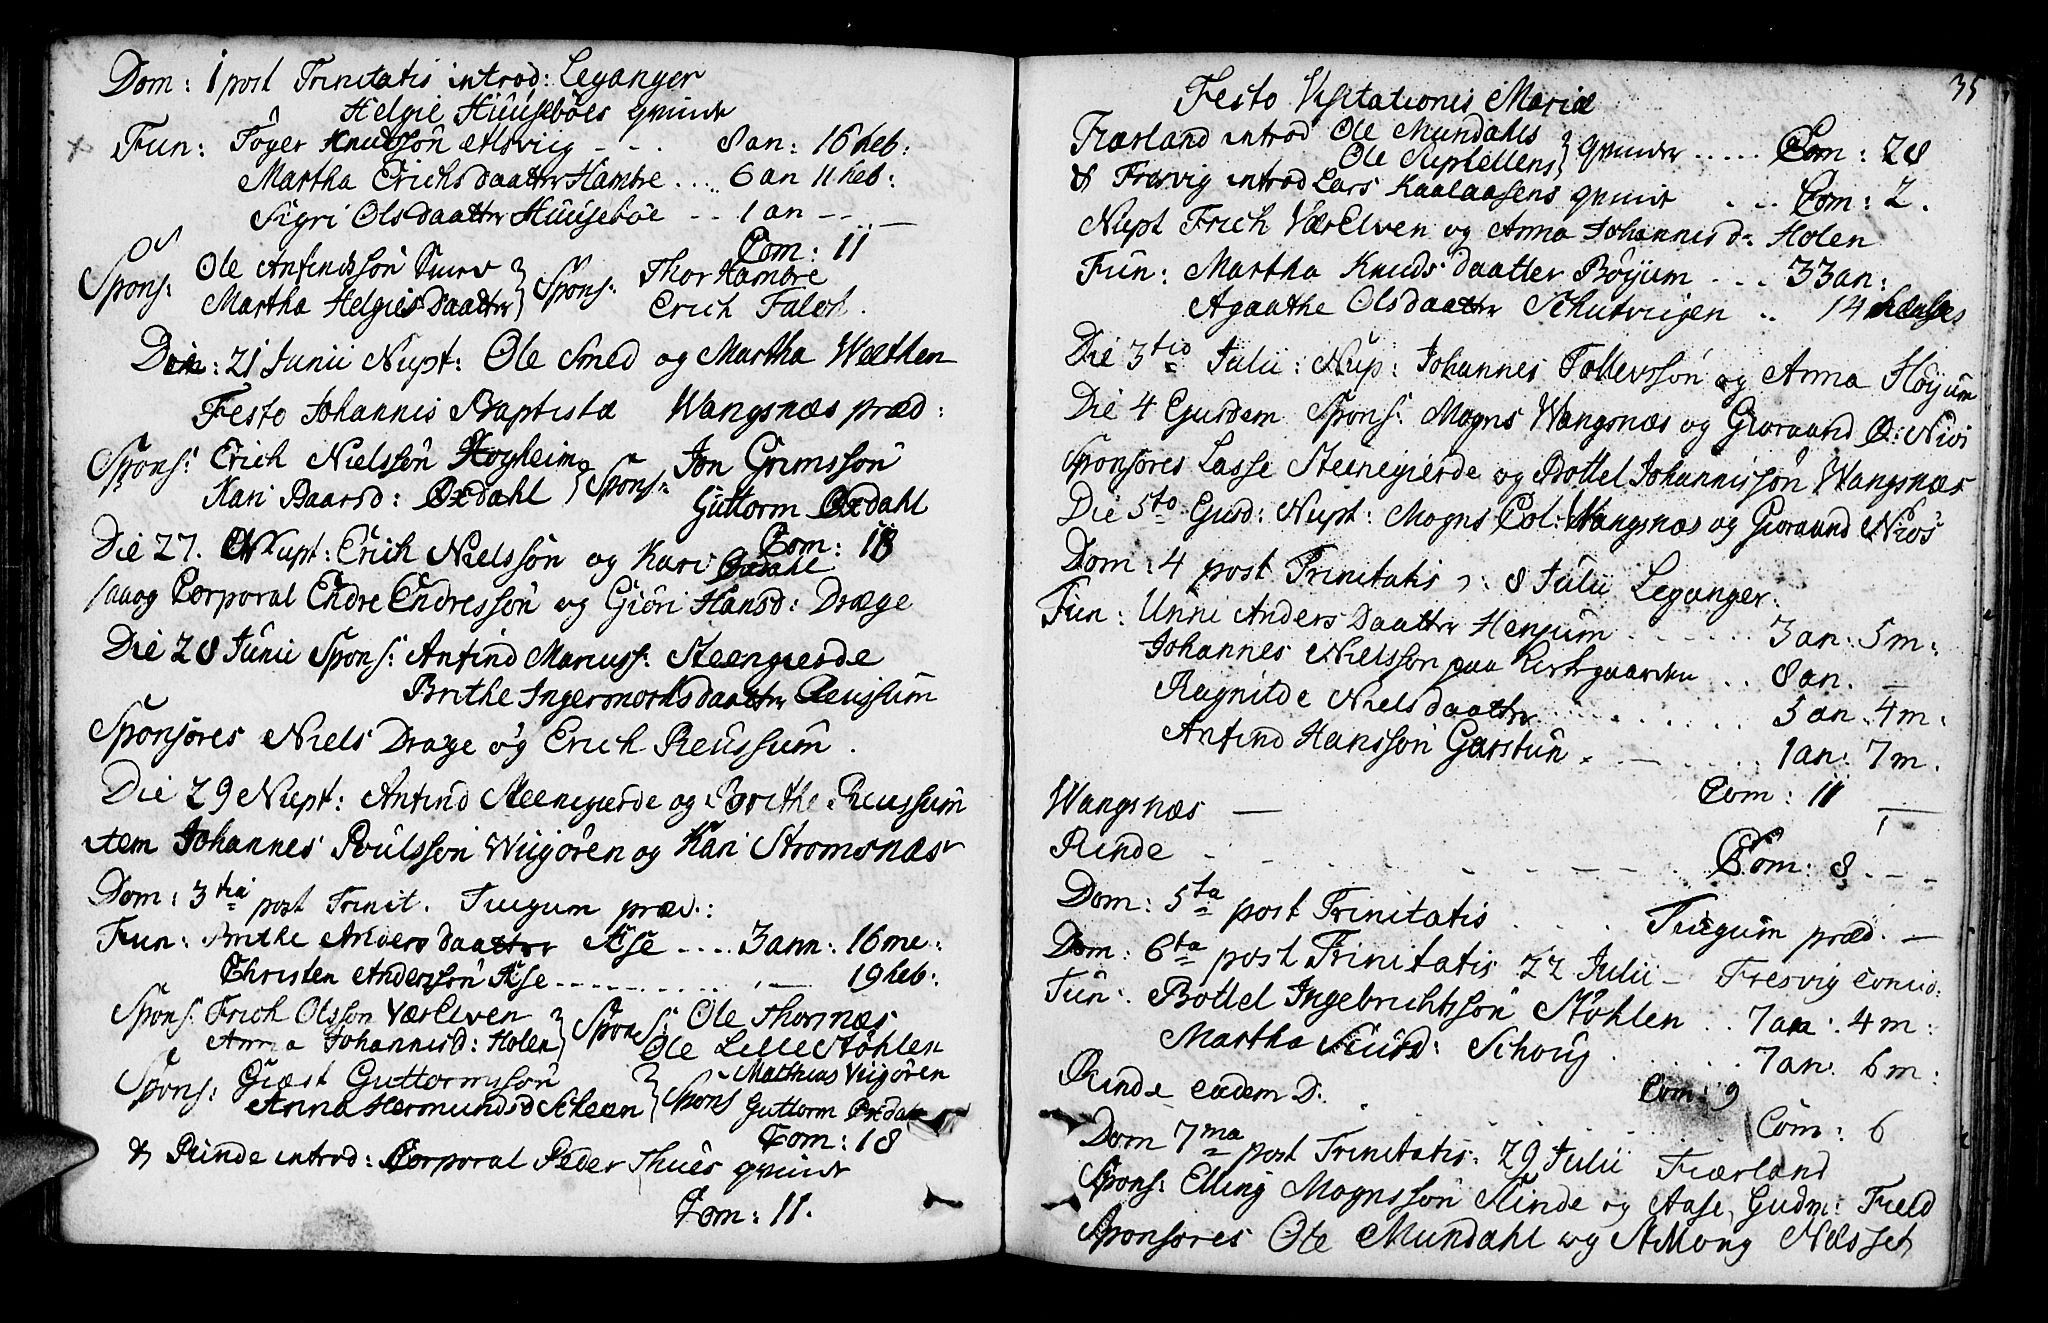 Dom: 1 post Trinitatis introd: Leganger
Helgie Huuseböes qvinde
Fun: Töger Knutsön Alsviig - - . 8 an: 16 heb:
Martha Erichsdaatter Hambre .... 6 an 11 heb:
Sigri Olsdaatter Huusebøe - - 1 an - -
Com: 11
Spons: Ole Anfindssön
Martha Helgiesdaatter } Spons: Thor Hambre
Erich Faleh.
Die: 21 Junii Nupt: Ole Smed og Martha Wethlen
Festo Johannis Baptistæ Wangsnæs præd:
Spons: Erich Nielssön Hogheim
Kari Baarsd: Oxdahl } Spons: Jon Grimssön
Guttorm Oxdahl
Com: 18
Die 27. Nupt: Erich Nielssön og Kari Oxdahl
saaog Corporal Endre Endressön og Giöri Hansd: Dræge
Die 28 Junii Spons: Anfind Mariuss: Steengierde
Brithe Ingermorhsdaatter Reussum
Sponsores Niels Drage og Erich Reussum.
Die 29 Nupt: Anfind Steenegierde og Brithe Reussum
item Johannes Poulssön Wiigören og Kari Stromsnæs
Dom: 3tia post Trinit. Tiugum præd.:
Fun: Brithe Andersdaatter Ase .... 3 ann: 16 me:
Christen Anderssön Ase - - - - - 19 heb:
Spons: Erich Olsson Værelven
Anna Johannisd: Holen } Spons: Ole Thornæs
Ole Lille Støhlen
Spons: Giest Guttormssön
Anna Hermundsd Scheen } Spons Mathias Viigören
Guttorm Oxdahl
Com: 18
& Rinde introd: Corporal Peder Thues qvinde
Com: 11.
35
Festo Visitationis Mariæ
Fiærland introd Ole Mundahls
Ole Suphellens } qvinder ..... Com: 28
& Fresvig introd Lars Kaalaasens qvinde ... Com: 2.
Nupt Erich Værelven og Anna Johannisd: Holen
Fun: Martha Knudsdaatter Böyum ... 33 an:
Agaathe Olsdaatter Schutvigen .. 14
Die 3tio Julii: Nup: Johannes Tollevssön og Anna Höyum
Die 4 Ejusdem Spons: Mogns Wangsnæs og Gioraand O: Nisi
Sponsores Lasse Steenegierde og Bottel Johannissön Wangsnæs
Die 5to Ejusd: Nupt: Mogns Col: Wangsnæs og Gioraand Niøs
Dom: 4 post Trinitatis ɔ: 8 Julii Leganger:
Fun: Unni Andersdaatter Henjum ...... 3 an: 5 m:
Johannes Nielsson paa Kirkegaarden .. 8 an. -
Ragnilde Nielsdaatter ........ 3 an. 4 m:
Anfind Hansson Garstun . - - ... 1 an: 7 m.
Com: 11
Wangsnæs —
Rinde - - - - - - Com: 8. - -
Dom: 5ta post Trinitatis .... Tiugum præd. —
Dom: 6ta post Trinitatis 22 Julii - Fresvig concio:
Fun: Bottel Ingebrichtssön Støhlen .. 7 an: 4 m:
Martha Siurd: Schoug ..... 7 an: 6 m:
Com: 9
Rinde eadem D: ..... Com: 6
Dom 7ma post Trinitatis: 29 Julii Fiærland
Spons: Elling Mognssön Rinde og Aase Gudm: Field
Sponsores Ole Mundahl og Amöng Nesset